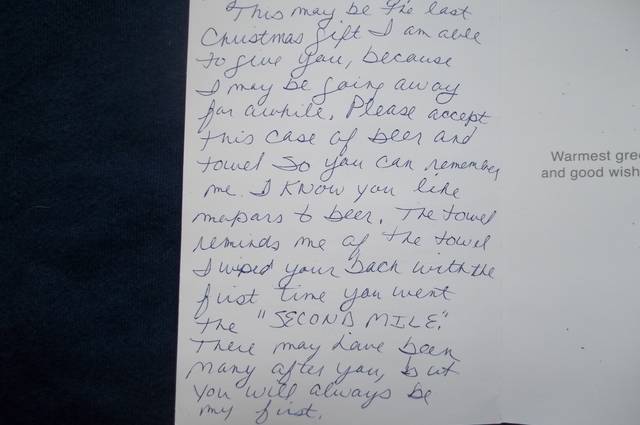 This may be the last
Christmas gift I am able
to give you, because
I may be going away
for awhile. Please accept
this case of beer and
towel so you can remember
me. I know you like
mopars & beer. The towel
reminds me of the towel
I wiped your back with the
first time you went
the "SECOND MILE".
There may have been
many after you, but
you will always be
my first.
Warmest gree
and good wish